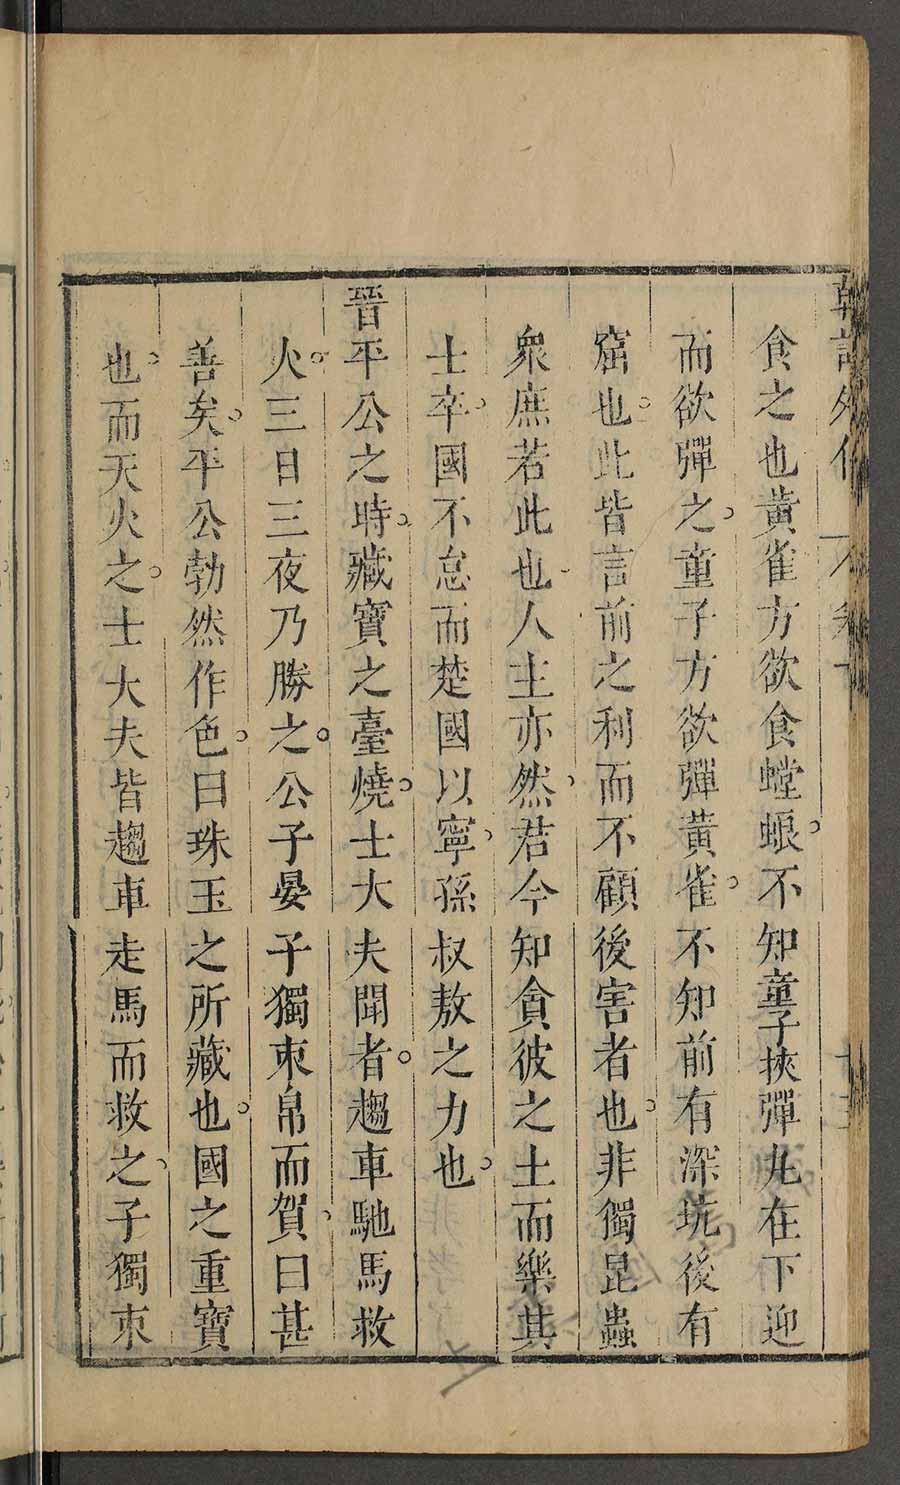 韓詩外傳 卷十
食之也黃雀方欲食螳蜋不知童子挾彈丸在下迎
而欲彈之童子方欲彈黃雀不知前有深坑後有
窟也此皆言前之利而不顧後害者也非獨昆蟲
衆庶若此也人主亦然君今知貪彼之土而樂其
士卒國不怠而楚國以寧孫叔敖之力也
晉平公之時藏寶之臺燒士大夫聞者趨車馳馬救
火三日三夜乃勝之公子晏子獨束帛而賀曰甚
善矣平公勃然作色曰珠玉之所藏也國之重寶
也而天火之士大夫皆趨車走馬而救之子獨束